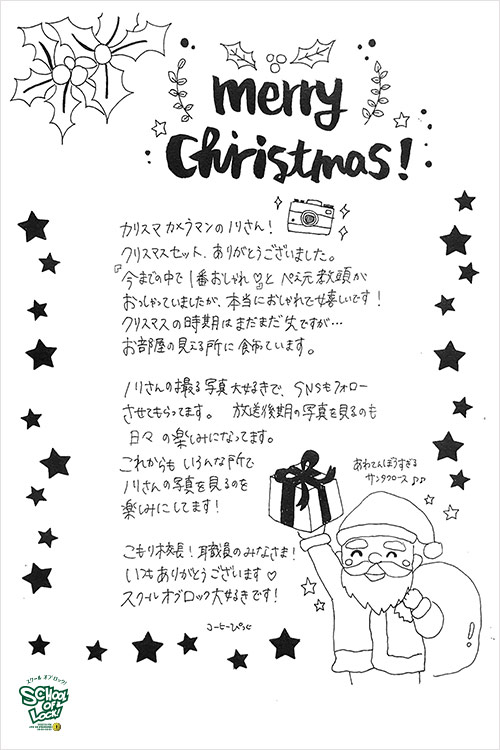 merry
Christmas!
カリスマカメラマンのノリさん!
クリスマスセット、ありがとうございました。
『今までの中で1番おしゃれ♡』と ぺえ元教頭が
おっしゃっていましたが、本当におしゃれで嬉しいです!
クリスマスの時期はまだまだ先ですが…
お部屋の見える所に飾っています。
ノリさんの撮る写真大好きで、SNSもフォロー
させてもらってます。 放送後期の写真を見るのも
日々の楽しみになってます。
これからも いろんな所で
ノリさんの写真を見るのを
楽しみにしてます!
あわてんぼうすぎる
サンタクロース♪♪
こもり校長! 職員のみなさま!
いつもありがとうございます♡
スクールオブロック大好きです!
コーヒーぴ
スクール オブ ロック!
SCHOOL
OF
LOCK!